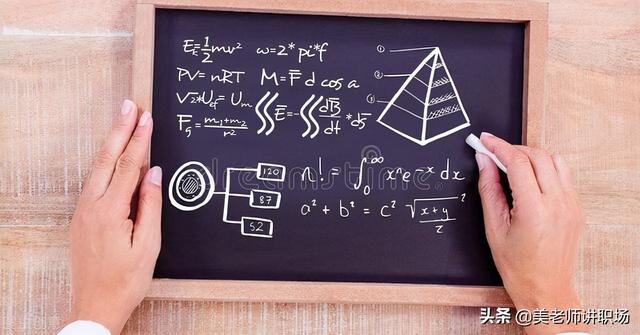 Ek=½mv² ω=2*pi*f
PV=nRT M=F d cos a
√2*Uef=Um
E=-dB/dt*dS
Fg=m1+m2/r²
①
②
③
120
87
52
n!=∫₀^∞ xⁿe⁻ˣdx
a²+b²=c² √x+y/2 ²
dreamstime
头条 @美老师讲职场